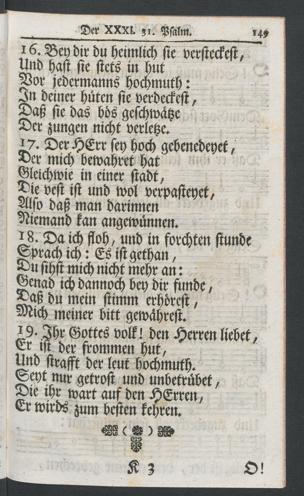 Der XXXI. 31. Psalm. 149
16. Bey dir du heimlich sie versteckest,
Und hast sie stets in hut
Vor jedermanns hochmuth:
In deiner hüten sie verdeckest,
Daß sie das bös geschwätze
Der zungen nicht verletze.
17. Der HErr sey hoch gebenedeyet,
Der mich bewahret hat
Gleichwie in einer stadt,
Die vest ist und wol verpasteyet,
Also daß man darinnen
Niemand kan angewünnen.
18. Da ich floh, und in forchten stunde
Sprach ich: Es ist gethan,
Du sihst mich nicht mehr an:
Genad ich dannoch bey dir funde,
Daß du mein stimm erhörest,
Mich meiner bitt gewährest.
19. Ihr Gottes volk! den Herren liebet,
Er ist der frommen hut,
Und strafft der leut hochmuth.
Seyt nur getrost und unbetrübet,
Die ihr wart auf den HErren,
Er wirds zum besten kehren.
K 3 O!